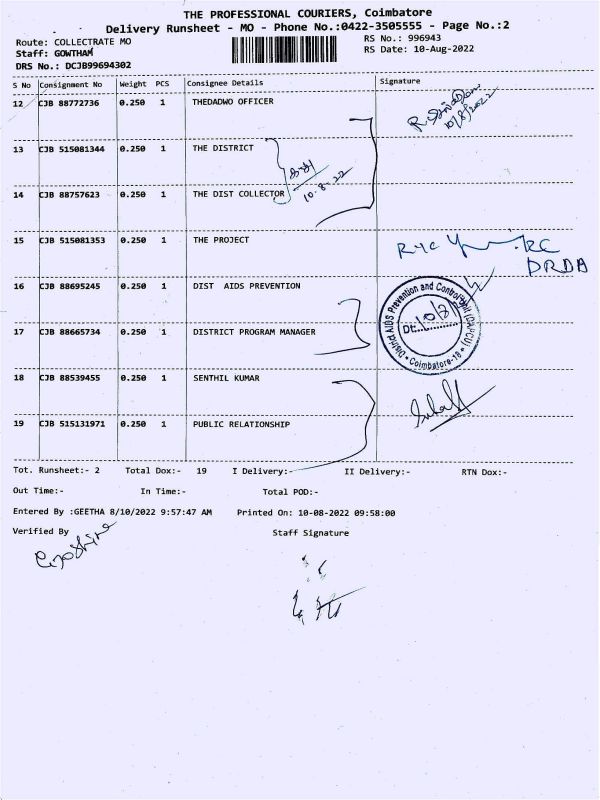 THE PROFESSIONAL COURIERS, Coimbatore
Delivery Runsheet - MO - Phone No.:0422-3505555 - Page No.:2
Route: COLLECTRATE MO
RS No.: 996943
Staff: GOWTHAM
RS Date: 10-Aug-2022
DRS No.: DCJB99694302
S No Consignment No Weight PCS Consignee Details Signature
12 CJB 88772736 0.250 1 THEDADWO OFFICER
10/8/2022
13 CJB 515081344 0.250 1 THE DISTRICT
14 CJB 88757623 0.250 1 THE DIST COLLECTOR
10.8.22
15 CJB 515081353 0.250 1 THE PROJECT
DRDA
16 CJB 88695245 0.250 1 DIST AIDS PREVENTION
District AIDS Prevention and Control Unit (DAPCU)
Dt:
Coimbatore-18
17 CJB 88665734 0.250 1 DISTRICT PROGRAM MANAGER
18 CJB 88539455 0.250 1 SENTHIL KUMAR
19 CJB 515131971 0.250 1 PUBLIC RELATIONSHIP
Tot. Runsheet:- 2 Total Dox:- 19 I Delivery:- II Delivery:- RTN Dox:-
Out Time:- In Time:- Total POD:-
Entered By :GEETHA 8/10/2022 9:57:47 AM Printed On: 10-08-2022 09:58:00
Verified By Staff Signature